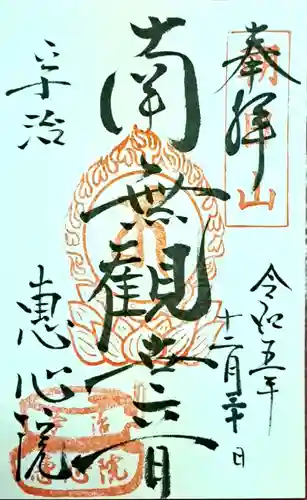 奉拝
朝日山
令和五年
十二月三十日
南無観世音
宇治
恵心院
宇治
恵心院